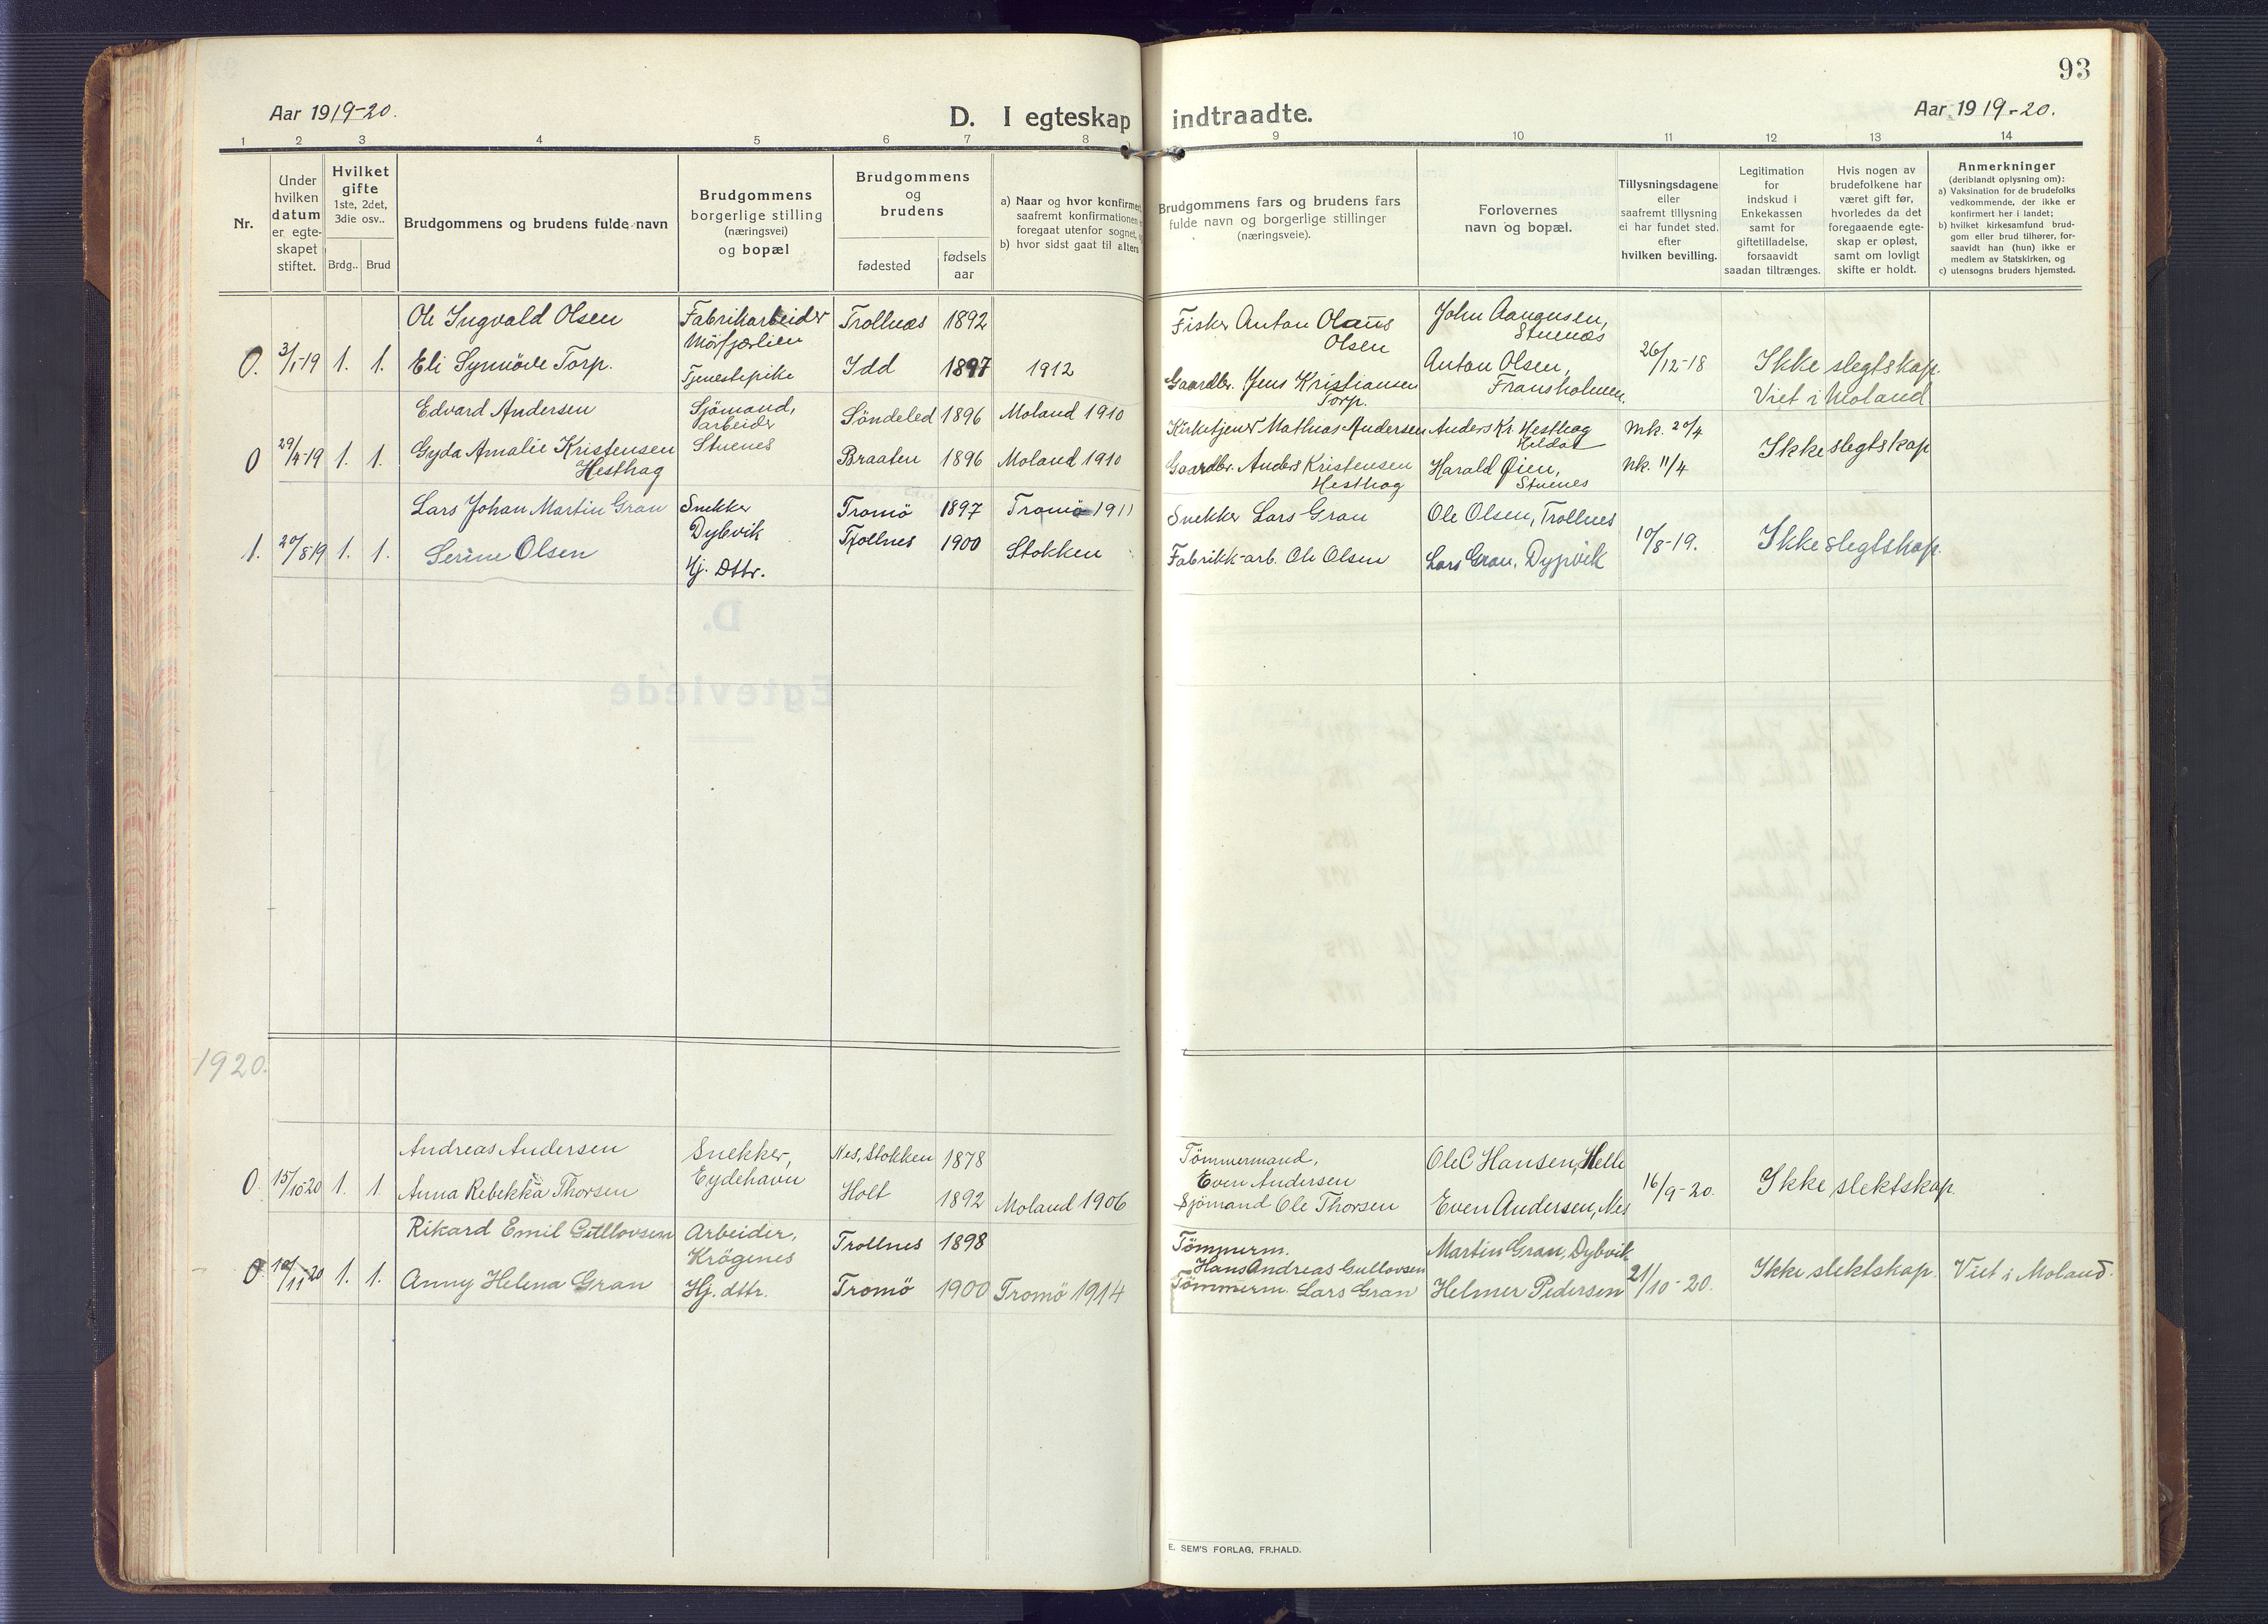 93
Aar 1919-20.
D. I egteskap indtraadte.
Aar 1919-20.
1 2 3 4 5 6 7 8 9 10 11 12 13 14
Nr.
Under hvilken datum er egte-skapet stiftet.
Hvilket gifte 1ste, 2det, 3die osv..
Brdg.. Brud
Brudgommens og brudens fulde navn
Brudgommens borgerlige stilling (næringsvei) og bopæl
Brudgommens og brudens
fødested
fødsels aar
a) Naar og hvor konfirmert,
saafremt konfirmationen
foregaat utenfor sognet,
b) hvor sidst gaat til alters
Brudgommens fars og brudens fars
fulde navn og borgerlige stillinger
(næringsveie).
Forlovernes
navn og bopæl.
Tillysningsdagene
eller
saafremt tillysning
ei har fundet sted.
efter
hvilken bevilling.
Legitimation
for
indskud i
Enkekassen
samt for
giftetilladelse,
forsaavidt
saadan tiltrænges.
Hvis nogen av
brudefolkene har
været gift før,
hvorledes da det
foregaaende egte-
skap er opløst,
samt om lovligt
skifte er holdt.
Anmerkninger
(deriblandt oplysning om):
a) Vaksination for de brudefolks
vedkommende, der ikke er
konfirmert her i landet;
b) hvilket kirkesamfund brud-
gom eller brud tilhører, for-
saavidt han (hun) ikke er
medlem av Statskirken, og
c) utensogns bruders hjemsted.
Ole Ingvald Olsen Fabrikarbeider Trollnæs 1892 Fisker Anton Olaus Olsen John Aanonsen, Stuenæs
0. 3/1-19 1. 1. Eli Synnöve Torp. Tjenestepike Idd 1897 1912 Gaardbr. Jens Kristiansen Torp. Anton Olsen, Fransholmen. 26/12-18 Ikke slegtskap. Viet i Moland
Edvard Andersen Sjömand, arbeider Söndeled 1896 Moland 1910 Kirketjener Mathias Andersen Anders Kr. Hesthag Mk. 20/4
0 29/4-19 1. 1. Gyda Amalie Kristensen Hesthag Stuenes Braaten 1896 Moland 1910 Gaardbr. Anders Kristensen Hesthag Harald Øien, Stuenes Nk. 11/4 Ikke slegtskap
Lars Johan Martin Gran Snekker Dybvik Tromö 1897 Tromö 1911 Snekker Lars Gran Ole Olsen, Trollnes
1. 20/8 19 1. 1. Serine Olsen Hj. Dttr. Trollnes 1900 Stokken Fabrikk-arb. Ole Olsen Lars Gran, Dypvik 10/8-19. Ikke slegtskap.
D.
Egteviede
1920.
Andreas Andersen Snekker, Eydehavn Nes, Stokken 1878 Tömmermand, Even Andersen Ole C Hansen, Helle
0. 15/10 20 1. 1. Anna Rebekka Thorsen Holt 1892 Moland 1906 Sjömand Ole Thorsen Even Andersen, Nes 16/9-20. Ikke slektskap.
Rikard Emil Gullovsen Arbeider, Krögenes Trollnes 1898 Tömmerm. Hans Andreas Gullovsen Martin Gran, Dybvik
0. 10/11-20 1. 1. Anny Helena Gran Hj. dttr. Tromö 1900 Tromö 1914 Tömmerm. Lars Gran Helmer Pedersen 21/10-20. Ikke slektskap. Viet i Moland.
E. SEM'S FORLAG, FR.HALD.